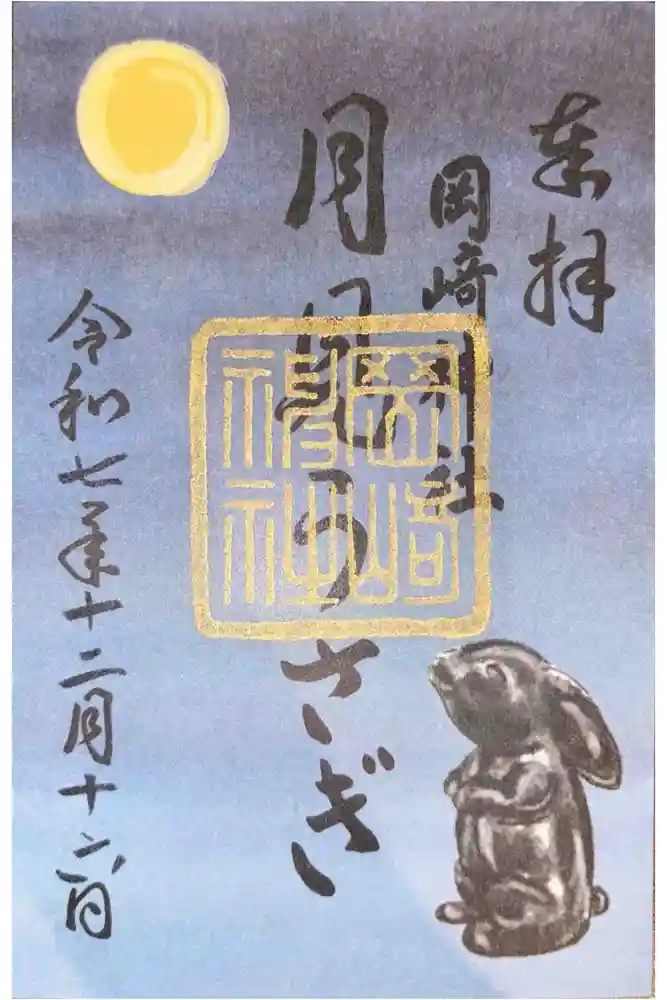 奉拝
岡崎神社
月見うさぎ
岡崎
神社
令和七年十二月十六日